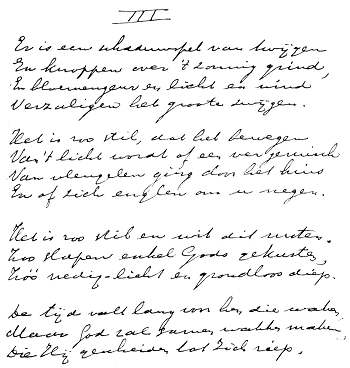 III
Er is een schaduwspel van twijgen
En knoppen over 't zonnig grind,
En bloemengeur en licht en wind
Verzaligen het groote zwijgen.
Het is zoo stil, dat het bewegen
Van 't licht wordt of een ver geruisch
Van vleugelen ging door het huis
En of zich englen om u negen.
Het is zoo stil en wit dit rusten.
Zoo slapen enkel Gods gekusten,
Zóó vredig-licht en grondloos diep.
De tijd valt lang voor hen, die waken,
Maar God zal samen wakker maken,
Die Hij gescheiden tot Zich riep.